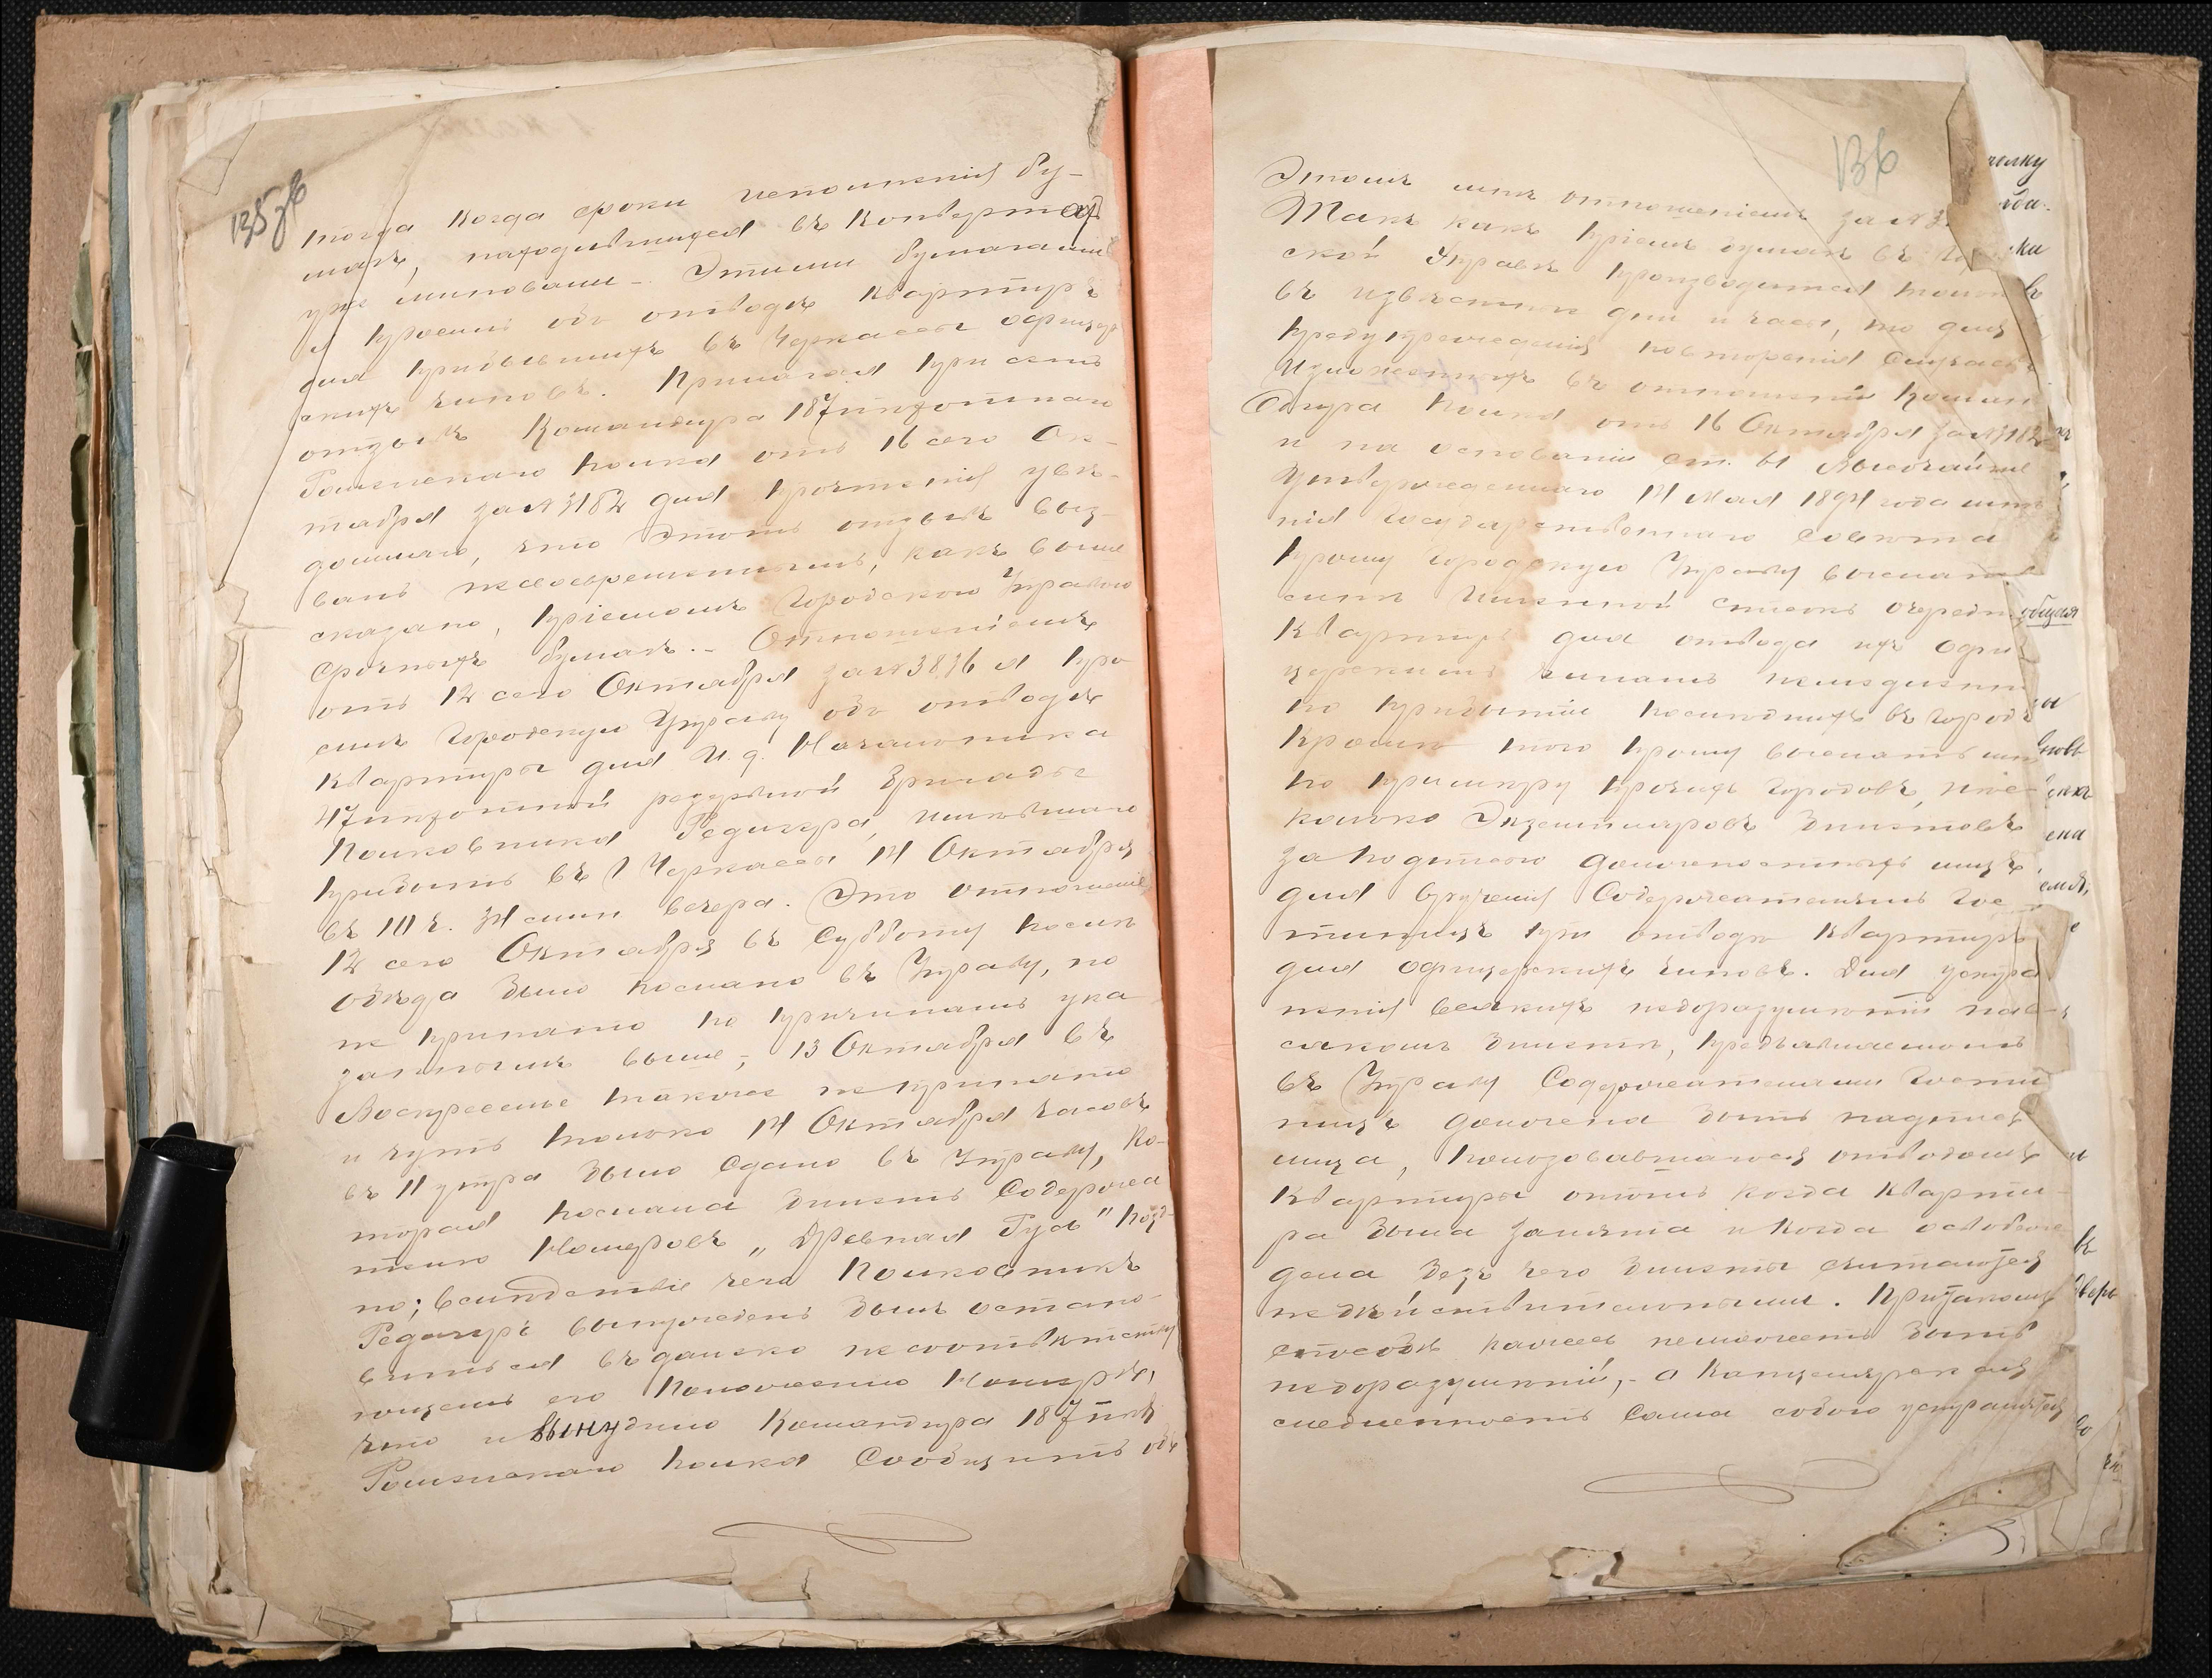 135 об
тогда когда сроки исполненія бу-
магъ, находившихся въ конвертах
уже миновали. Этими бумагами
я просилъ объ отводѣ квартиръ
для прибывшихъ въ Черкассы офицер
скихъ чиновъ. Прилагая при семъ
отзывъ Командира 187 пѣхотнаго
полка отъ 16 сего Ок-
тября за № 3182 для прочтенія увѣ-
домляю, что этотъ отзывъ выз-
ванъ несвоевременнымъ, какъ выше
сказано, пріемомъ Городскою Управою
срочныхъ бумагъ.- Отношеніемъ
отъ 12 сего Октября за № 3836 я про
силъ Городскую Управу объ отводѣ
квартиры для И. д. Начальника
47 пѣхотной резервной бригады
Полковника Редигера, имѣвшаго
прибыть въ г Черкассы 14 Октября
въ 10 ч. вечера. Это отношеніе
12 сего Октября въ Субботу послѣ
обѣда было послано въ Управу, но
не принято по причинамъ ука
заннымъ выше, 13 Октября въ
Воскресенье также не принято
и чуть только 14 Октября часовъ
въ 11 утра было сдано въ Управу, ко-
торая послала билетъ Содержа
телю Номеровъ „Древняя Русь" позд-
но; вслѣдствіе чего Полковникъ
Редигеръ вынужденъ былъ остано-
виться въ далеко несоотвѣтству
ющемъ его положенію Номерѣ,
что и вынудило Командира 187 пѣх
полка Сообщить объ
136
Этомъ мнѣ отношеніемъ за №
Такъ какъ пріемъ бумагъ въ
ской Управѣ производится только
въ извѣстные дни и часы, то для
предупрежденія повторенія случаевъ
изложенныхъ въ отношеніи Коман
дира полка отъ 16 Октября за № 3182
и на основаніи ст. Высочайше
утвержденнаго Мая года мнѣ
нія Государственнаго Совѣта
прошу Городскую Управу выслать
мнѣ именной списокъ очередн
квартиръ для отвода ихъ офи-
церскимъ чинамъ немедленно
по прибытіи послѣднихъ въ городъ
Кромѣ того прошу выслать мнѣ
по примѣру прочихъ городовъ, нѣс-
колько экземпляровъ билетовъ
за подписью должностныхъ лицъ
для врученія Содержателямъ гос
тиницъ при отводѣ квартиръ
для офицерскихъ чиновъ. Для устра
ненія всякихъ недоразумѣній на в-
сякомъ билетѣ, предъявляемомъ
въ Управу Содержателями гости
ницъ должна быть надпись
лица, пользовавшагося отводомъ
квартиры о томъ когда кварти-
ра была занята и когда освобож
дена безъ чего билеты считаются
недѣйствительными. При такомъ
способѣ кажется неможетъ быть
недоразумѣній,- а Канцелярская
медленность сама собою устранится